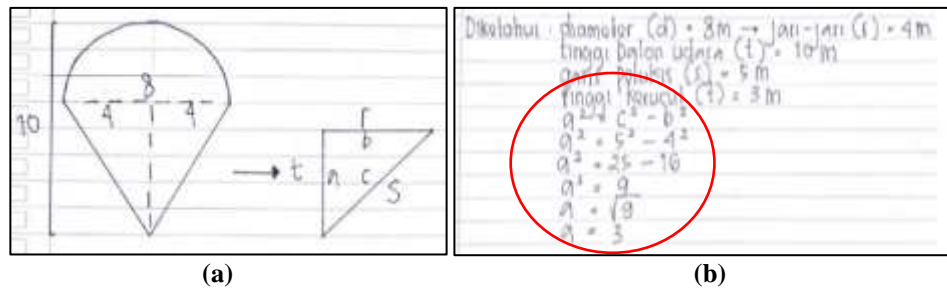 8
4 4
10
r
b
t a c
S
(a)
Diketahui : diameter (d) = 8m → jari-jari (r) = 4m
tinggi balon udara (t) = 10 m
garis pelukis (s) = 5 m
tinggi kerucut (t) = 3 m
a² = c² - b²
a² = 5² - 4²
a² = 25 - 16
a² = 9
a = √9
a = 3
(b)